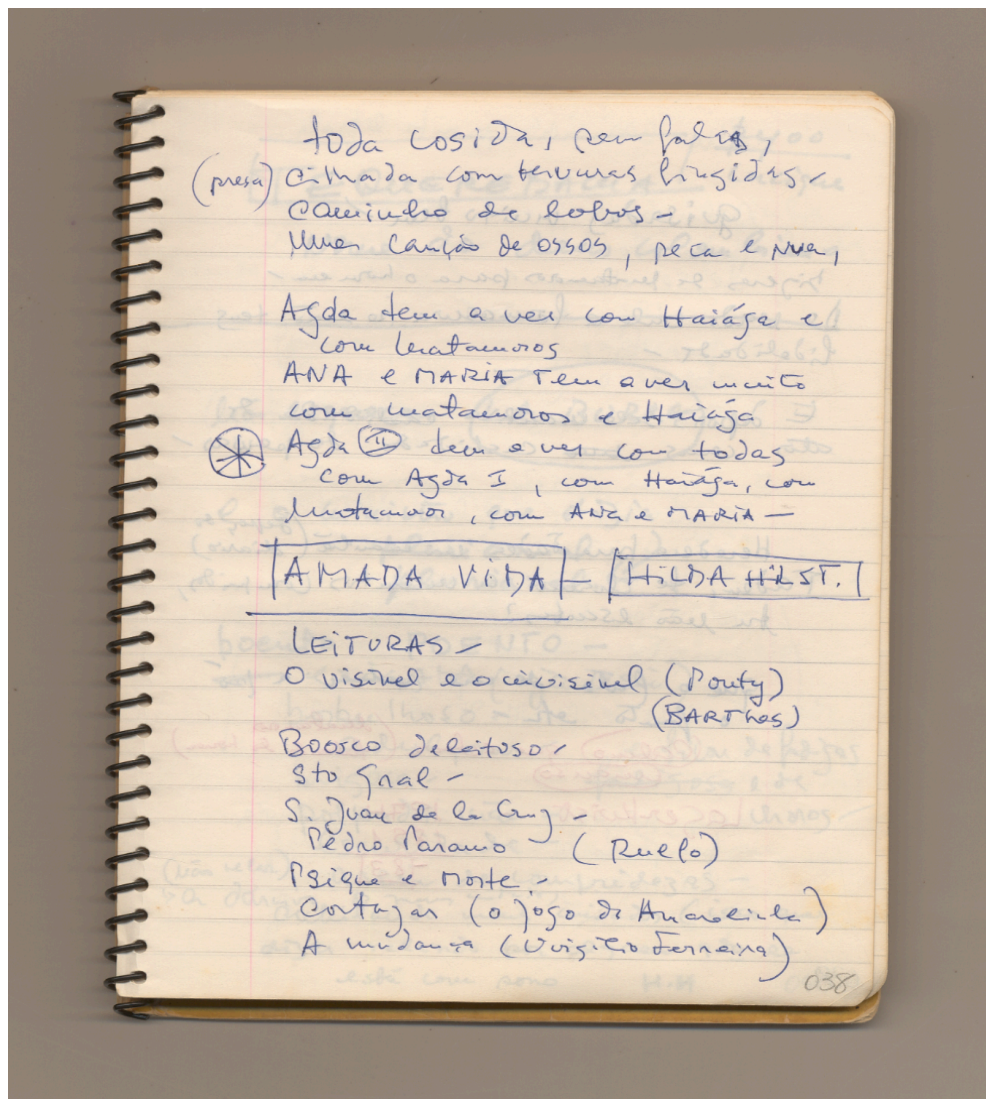 toda cosida, sem falas,
(presa) cilhada com ternuras fingidas -
caminho de lobos -
Uma canção de ossos, peca e nua,
Agda tem a ver com Haiága e
com matamoros
ANA e MARIA Tem a ver muito
com matamoros e Haiága
Agda II tem a ver com todas
com Agda I, com Haiága, com
Matamoros, com ANA e MARIA -
AMADA VIDA - HILDA HILST.
LEITURAS -
O visível e o invisível (Ponty)
(BARThes)
Boosco deleitoso -
Sto Graal -
S. Juan de la Cruz -
Pedro Paramo (Rulfo)
Psique e Morte -
Cortazar (o jogo da Amarelinha)
A mudança (Virgilio Ferreira)
038